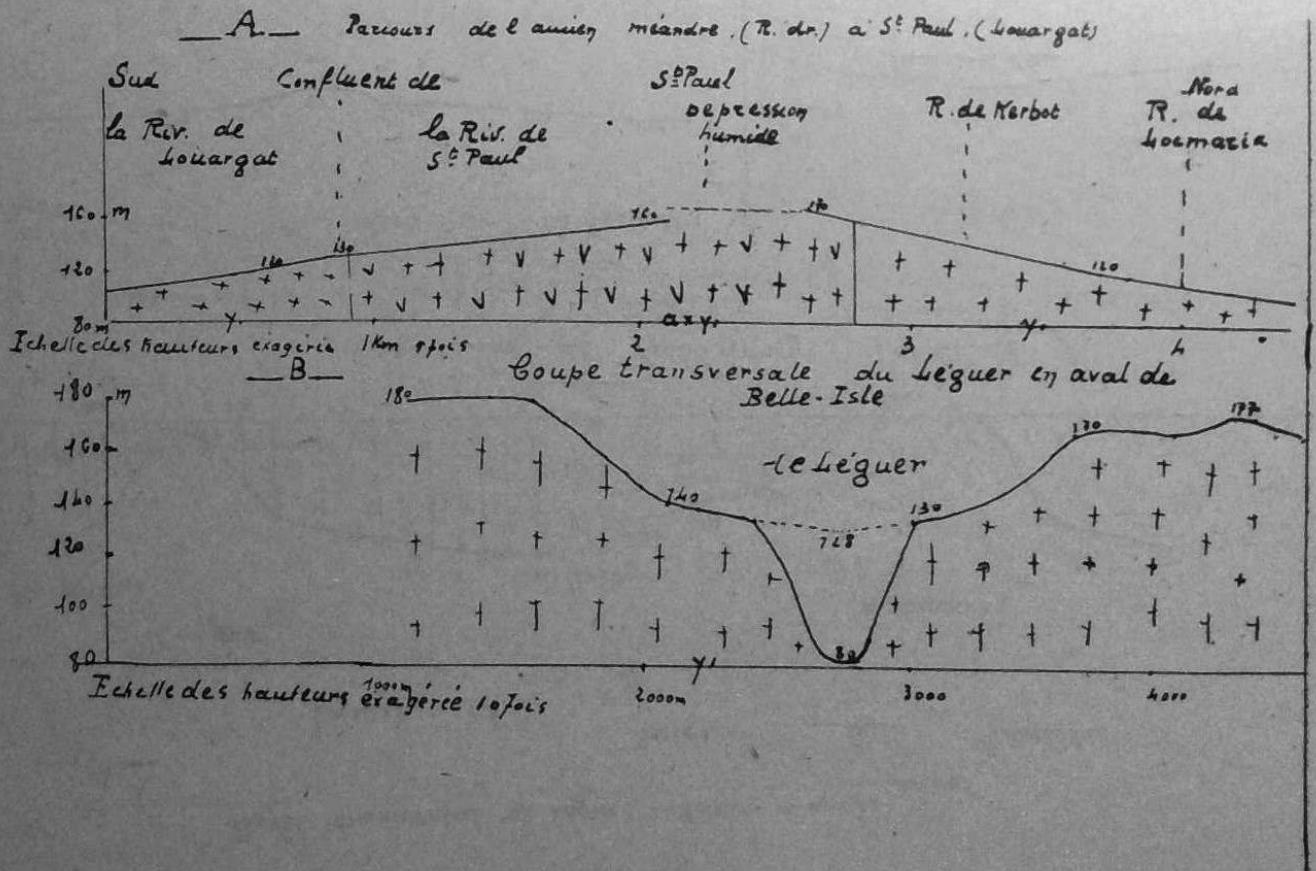 A Parcours de l'ancien méandre. (R. dr.) à St Paul. (Louargat)
Sud
Confluent de
St Paul
Nord
la Riv. de
Louargat
la Riv. de
St Paul
Depression
humide
R. de Kerbot
R. de
Locmaria
160 m
120
80m
120
130
160
170
120
γ
a x γ
γ
1Km
2
3
4
Echelle des hauteurs exagérée 9 fois
B Coupe transversale du Léguer en aval de
Belle-Isle
180 m
160
140
120
100
80
180
140
128
80
130
170
177
le Léguer
γ
1000m
2000m
3000
4000
Echelle des hauteurs exagérée 10 fois